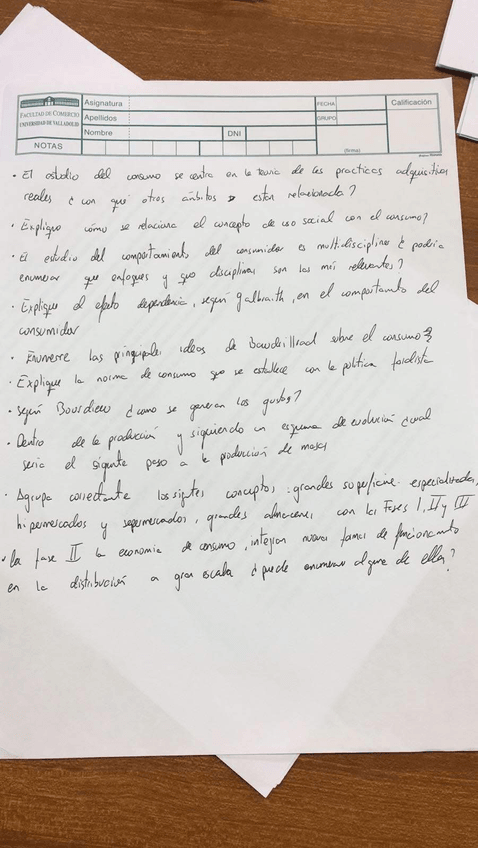 FACULTAD DE COMERCIO
UNIVERSIDAD DE VALLADOLID
NOTAS
Asignatura
Apellidos
Nombre
DNI
FECHA
GRUPO
(firma)
Calificación
· El estudio del consumo se centra en la teoria de las practicas adquisitivas
reales ¿ con que otros ámbitos estan relacionada?
· Explique cómo se relaciona el concepto de uso social con el consumo?
· El estudio del comportamiento del consumidor es multidisciplinar ¿ podria
enumerar que enfoques y que disciplinas son las más relevantes?
· Explique el efecto dependencia, según galbraith, en el comportamito del
consumidor
· Enumere las principales ideas de Baudrillrad sobre el consumo?
· Explique la norma de consumo que se establece con la politica fordista
· Según Bourdieu ¿como se generan los gustos?
· Dentro de la producción y siguiendo un esquema de evolución ¿cual
seria el sigente paso a la producción de masas
· Agrupa correctante los sigtes conceptos: grandes superficie especializadas,
hipermercados y supermercados, grandes almacenes con las Fases I, II y III
· La fase II la economia de consumo, integran nuevas formas de funcionamito
en la distribución a gran escala ¿ puede enumerar alguna de ellas?